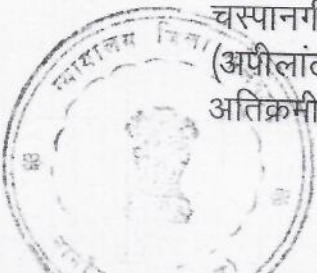 चस्पानगी
(अपीलांट
अतिक्रमी
न्यायालय जिला